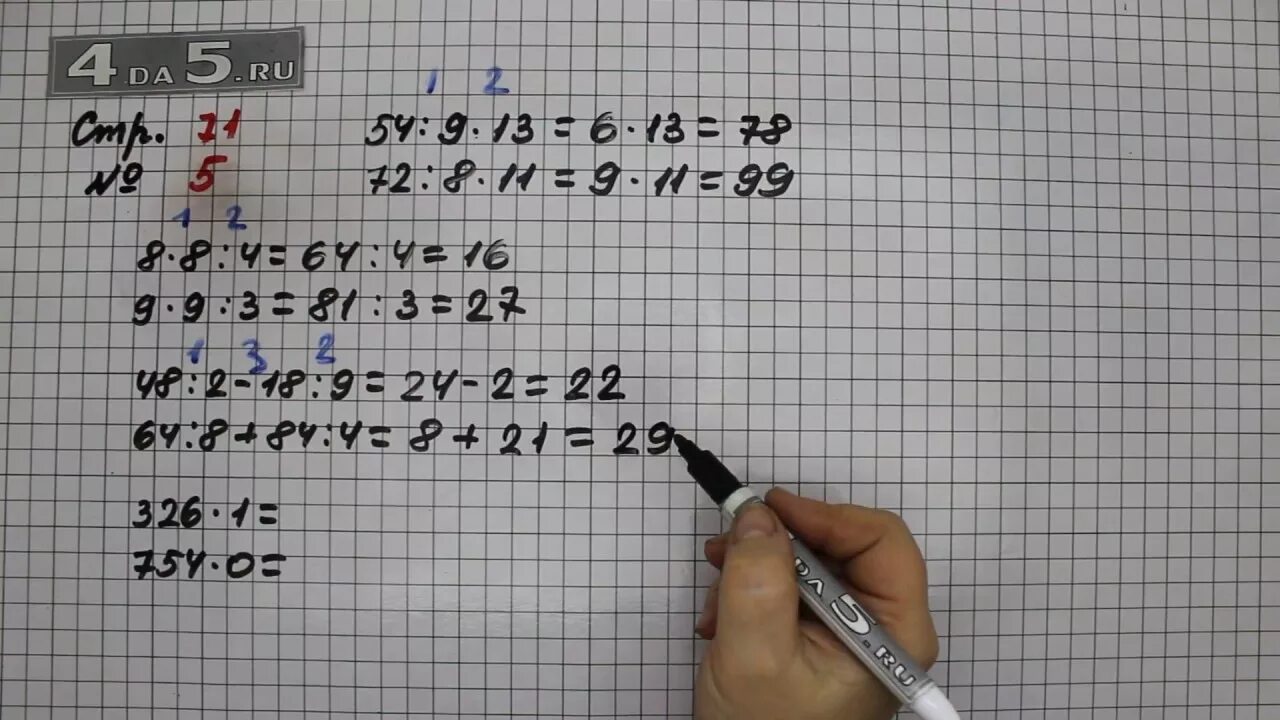 4DA5.RU
1 2
Стр. 71 54:9·13=6·13=78
№ 5 72:8·11=9·11=99
1 2
8·8:4=64:4=16
9·9:3=81:3=27
1 3 2
48:2-18:9=24-2=22
64:8+84:4=8+21=29
326·1=
754·0=
DA5.RU